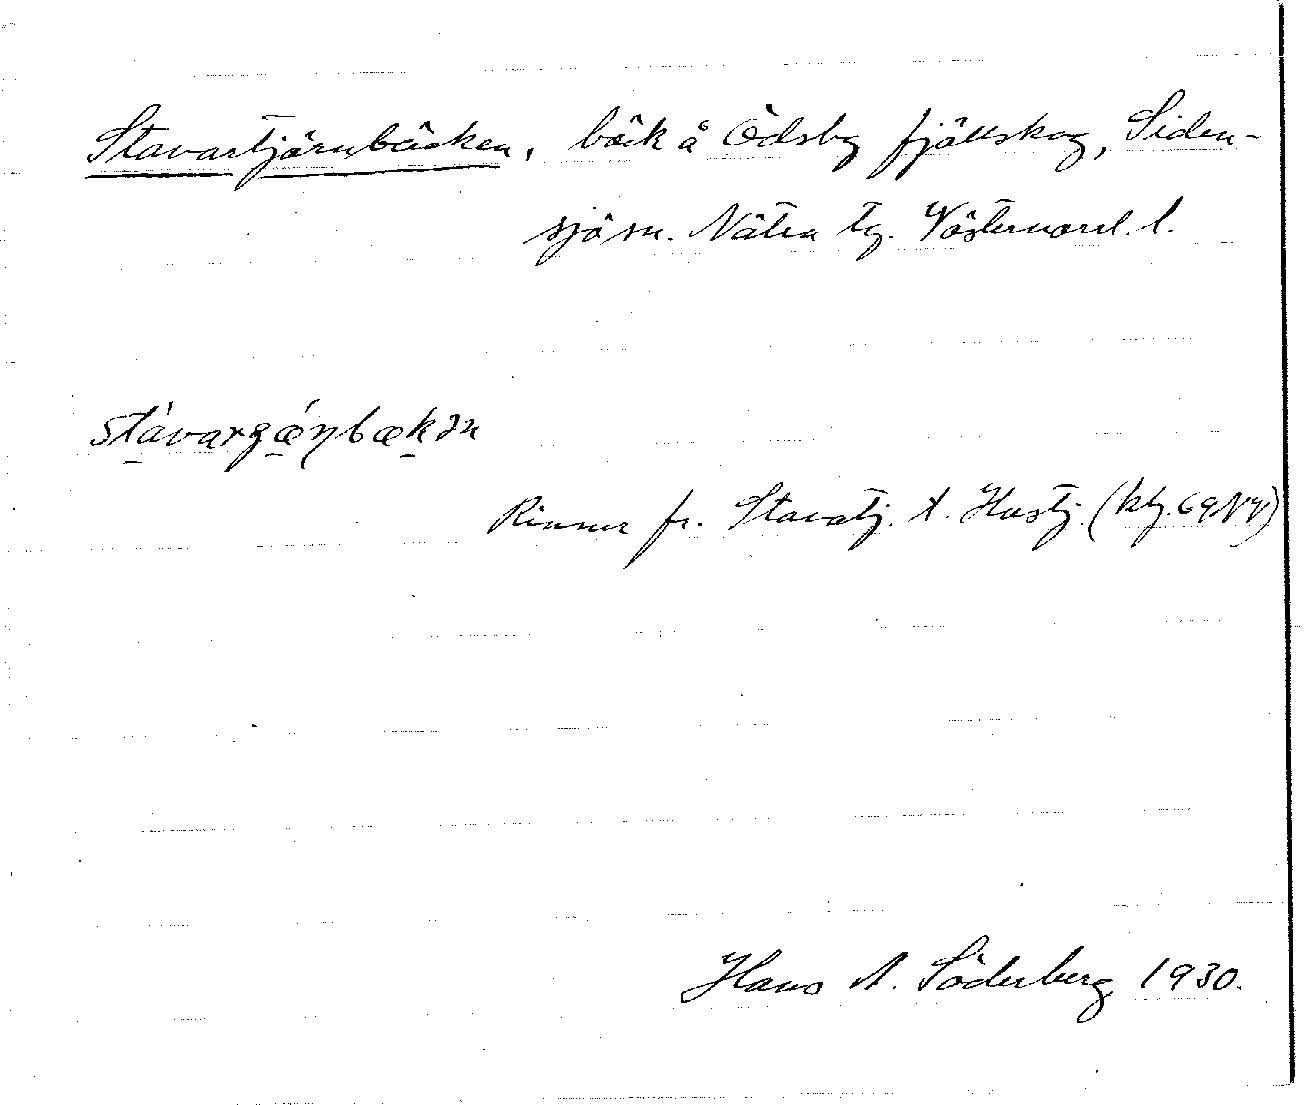 Stavartjärnbäcken, bäck å Ödsby fjällskog, Siden-
sjö sn. Nätra tg. Västernorrl. l.
stávarʒǽɳbækən
Rinner fr. Stavatj. t. Hustj. (kbl. 69 NV)
Hans A. Söderberg 1930.